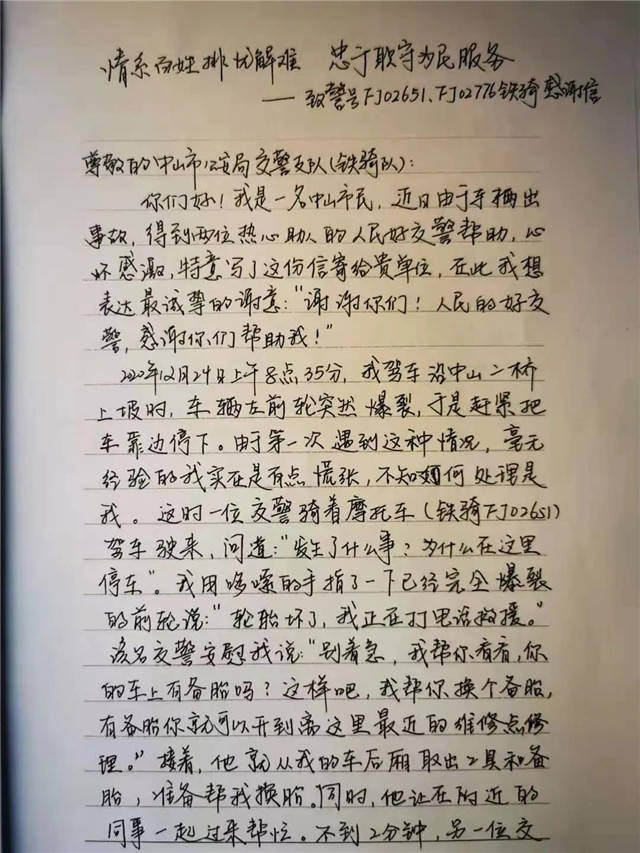 情系百姓排忧解难 忠于职守为民服务
——致警号FJ02651、FJ02776铁骑感谢信
尊敬的中山市公安局交警支队(铁骑队):
你们好!我是一名中山市民,近日由于车辆出
事故,得到两位热心助人的人民好交警帮助,心
怀感激,特意写了这份信寄给贵单位,在此我想
表达最诚挚的谢意:“谢谢你们!人民的好交
警,感谢你们帮助我!”
2020年12月24日上午8点35分,我驾车沿中山二桥
上坡时,车辆左前轮突然爆裂,于是赶紧把
车靠边停下。由于第一次遇到这种情况,毫无
经验的我实在是有点慌张,不知如何处理是
我。这时一位交警骑着摩托车(铁骑FJ02651)
驾车驶来,问道:“发生了什么事?为什么在这里
停车”。我用哆嗦的手指了一下已经完全爆裂
的前轮说:“轮胎坏了,我正在打电话救援。”
该名交警安慰我说:“别着急,我帮你看看,你
的车上有备胎吗?这样吧,我帮你换个备胎,
有备胎你就可以开到离这里最近的维修点修
理。”接着,他就从我的车后厢取出工具和备
胎,准备帮我换胎。同时,他让在附近的
同事一起过来帮忙。不到2分钟,另一位交